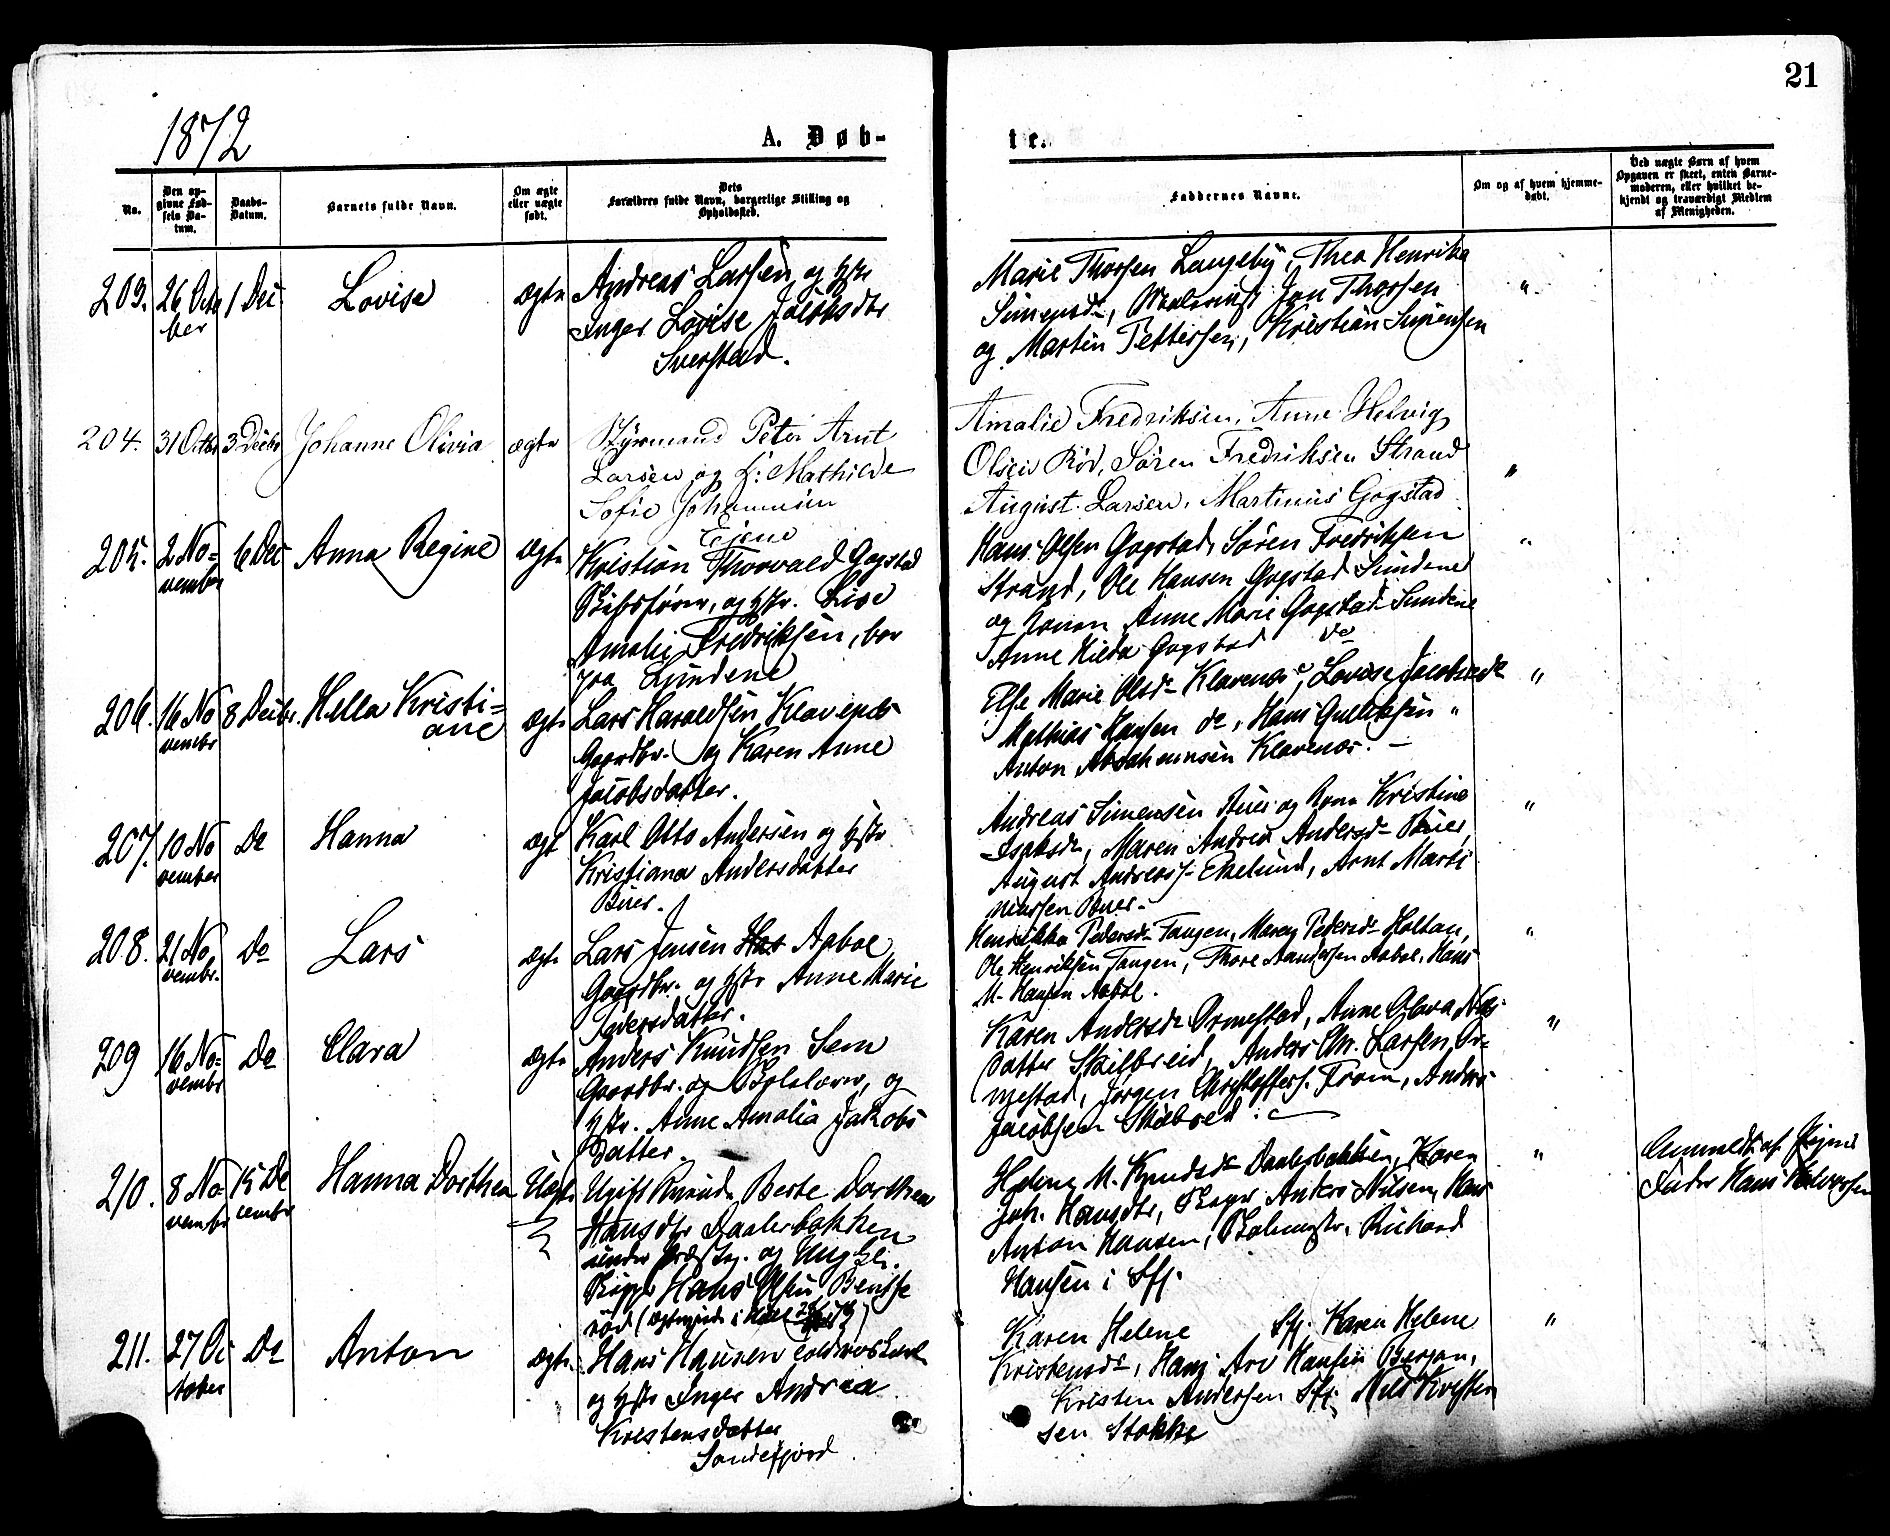 21
1872
A. Døb-
te.
No.
Den op-
givne Fød-
sels Da-
tum.
Daabs-
Datum.
Barnets fulde Navn.
Om ægte
eller uægte
født.
Dets
Forældres fulde Navn, borgerlige Stilling og
Opholdssted.
Faddernes Navne.
Om og af hvem hjemme-
døbt.
Ved uægte Børn af hvem
Opgaven er skeet, enten Barne-
moderen, eller hvilket be-
kjendt og troværdigt Medlem
af Menigheden.
203. 26 Octo
ber
1 Dec
Lovise
ægte
Andreas Larsen og Hstr
Inger Lovise Jacobsdtr
Marie Thorsen Langeby, Thea Henrika
Jan Thorsen
og Martin Pettersen, Kristian Simensen
"
204. 31 Octbr 3 Decbr Johanne Olivia ægte
Styrmand Peter Arnt
Larsen og H: Mathilde
Sofie Johannesen
Amalie Fredriksen, Anne Helvig
Olsen Rød, Søren Fredriksen Strand
August Larsen, Martinus Gogstad
"
205. 2 No=
vember
6 Dec
Anna Regine
ægte
Kristian Thorvald Gogstad
Skibsfører, og Hstr. Lise
Amalie Fredriksen, bor
paa Lundene
Hans Olsen Gogstad, Søren Fredriksen
Strand, Ole Hansen Gogstad Lundene
og Konen Anne Marie Gogstad Lundene
Anne Hilda Gogstad do
"
206. 16 No
vembr
8 Decbr.
Hella Kristi=
ane
ægte
Lars Haraldsen Klavenæs
Gaardbr. og Karen Anne
Jacobsdatter.
Else Marie Olsdr Klavenæs, Lovise Jacobsdr
Mathias Hansen do, Hans Gulliksen "
Anton Abrahamsen Klavenæs. —
"
207. 10 No
vember
Do
Hanna
ægt
Karl Otto Andersen og Hstr
Kristiana Andersdatter
Buer.
Andreas Simensen Buer og Kone Kristine
Isaksdr, Maren Andrea Andersdr Buer,
August Andreass. Ekelund, Arnt Marti
niussen Buer.
"
208. 21 No
vembr.
Do
Lars
ægte
Lars Jensen Aabol
Gaardbr. og Hstr Anne Marie
Pedersdatter.
Henrikka Pedersdr Tangen, Maren Pedersdr Holtan,
Ole Henriksen Tangen, Thore Andersen Aabol, Hans
M. Hansen Aabol.
"
209 16 No=
vembr
Do
Clara
ægte
Anders Knudsen Sem
Gaardbr. og Skolelærer, og
Hstr. Anne Amalia Jakobs
Datter.
Karen Andersdr Ormestad, Anne Olava
Datter Skilbreid, Anders Chr. Larsen Or=
mestad, Jørgen Christoffers. From, Anders
Jacobsen Skilbred.
"
210. 8 No
vembr
15 De
cembr
Hanna Dorthea
Uægte
Ugift Berte Dorthea
Hansdtr Daalerbakken
under Præstg. og Ungk.
Hans Olsen Bentse
rød
Helene M. Knudsdr Daalerbakken, Karen
Joh. Hansdtr, Anders Nilsen, Hans
Anton Hansen, Richard
Hansen i Sfj.
"
Anmeldt af Pigens
Fader Hans Halvorsen
211. 27 Oc
tober
Do
Anton
ægte
Hans Hansen
og Hstr Inger Andrea
Kristensdatter
Sandefjord
Karen Helene Sfj. Karen Helene
Kristensdr, Hans Arv Hansen Bergan,
Kristen Andersen Sfj. Nils Kristen
sen Stokke
"